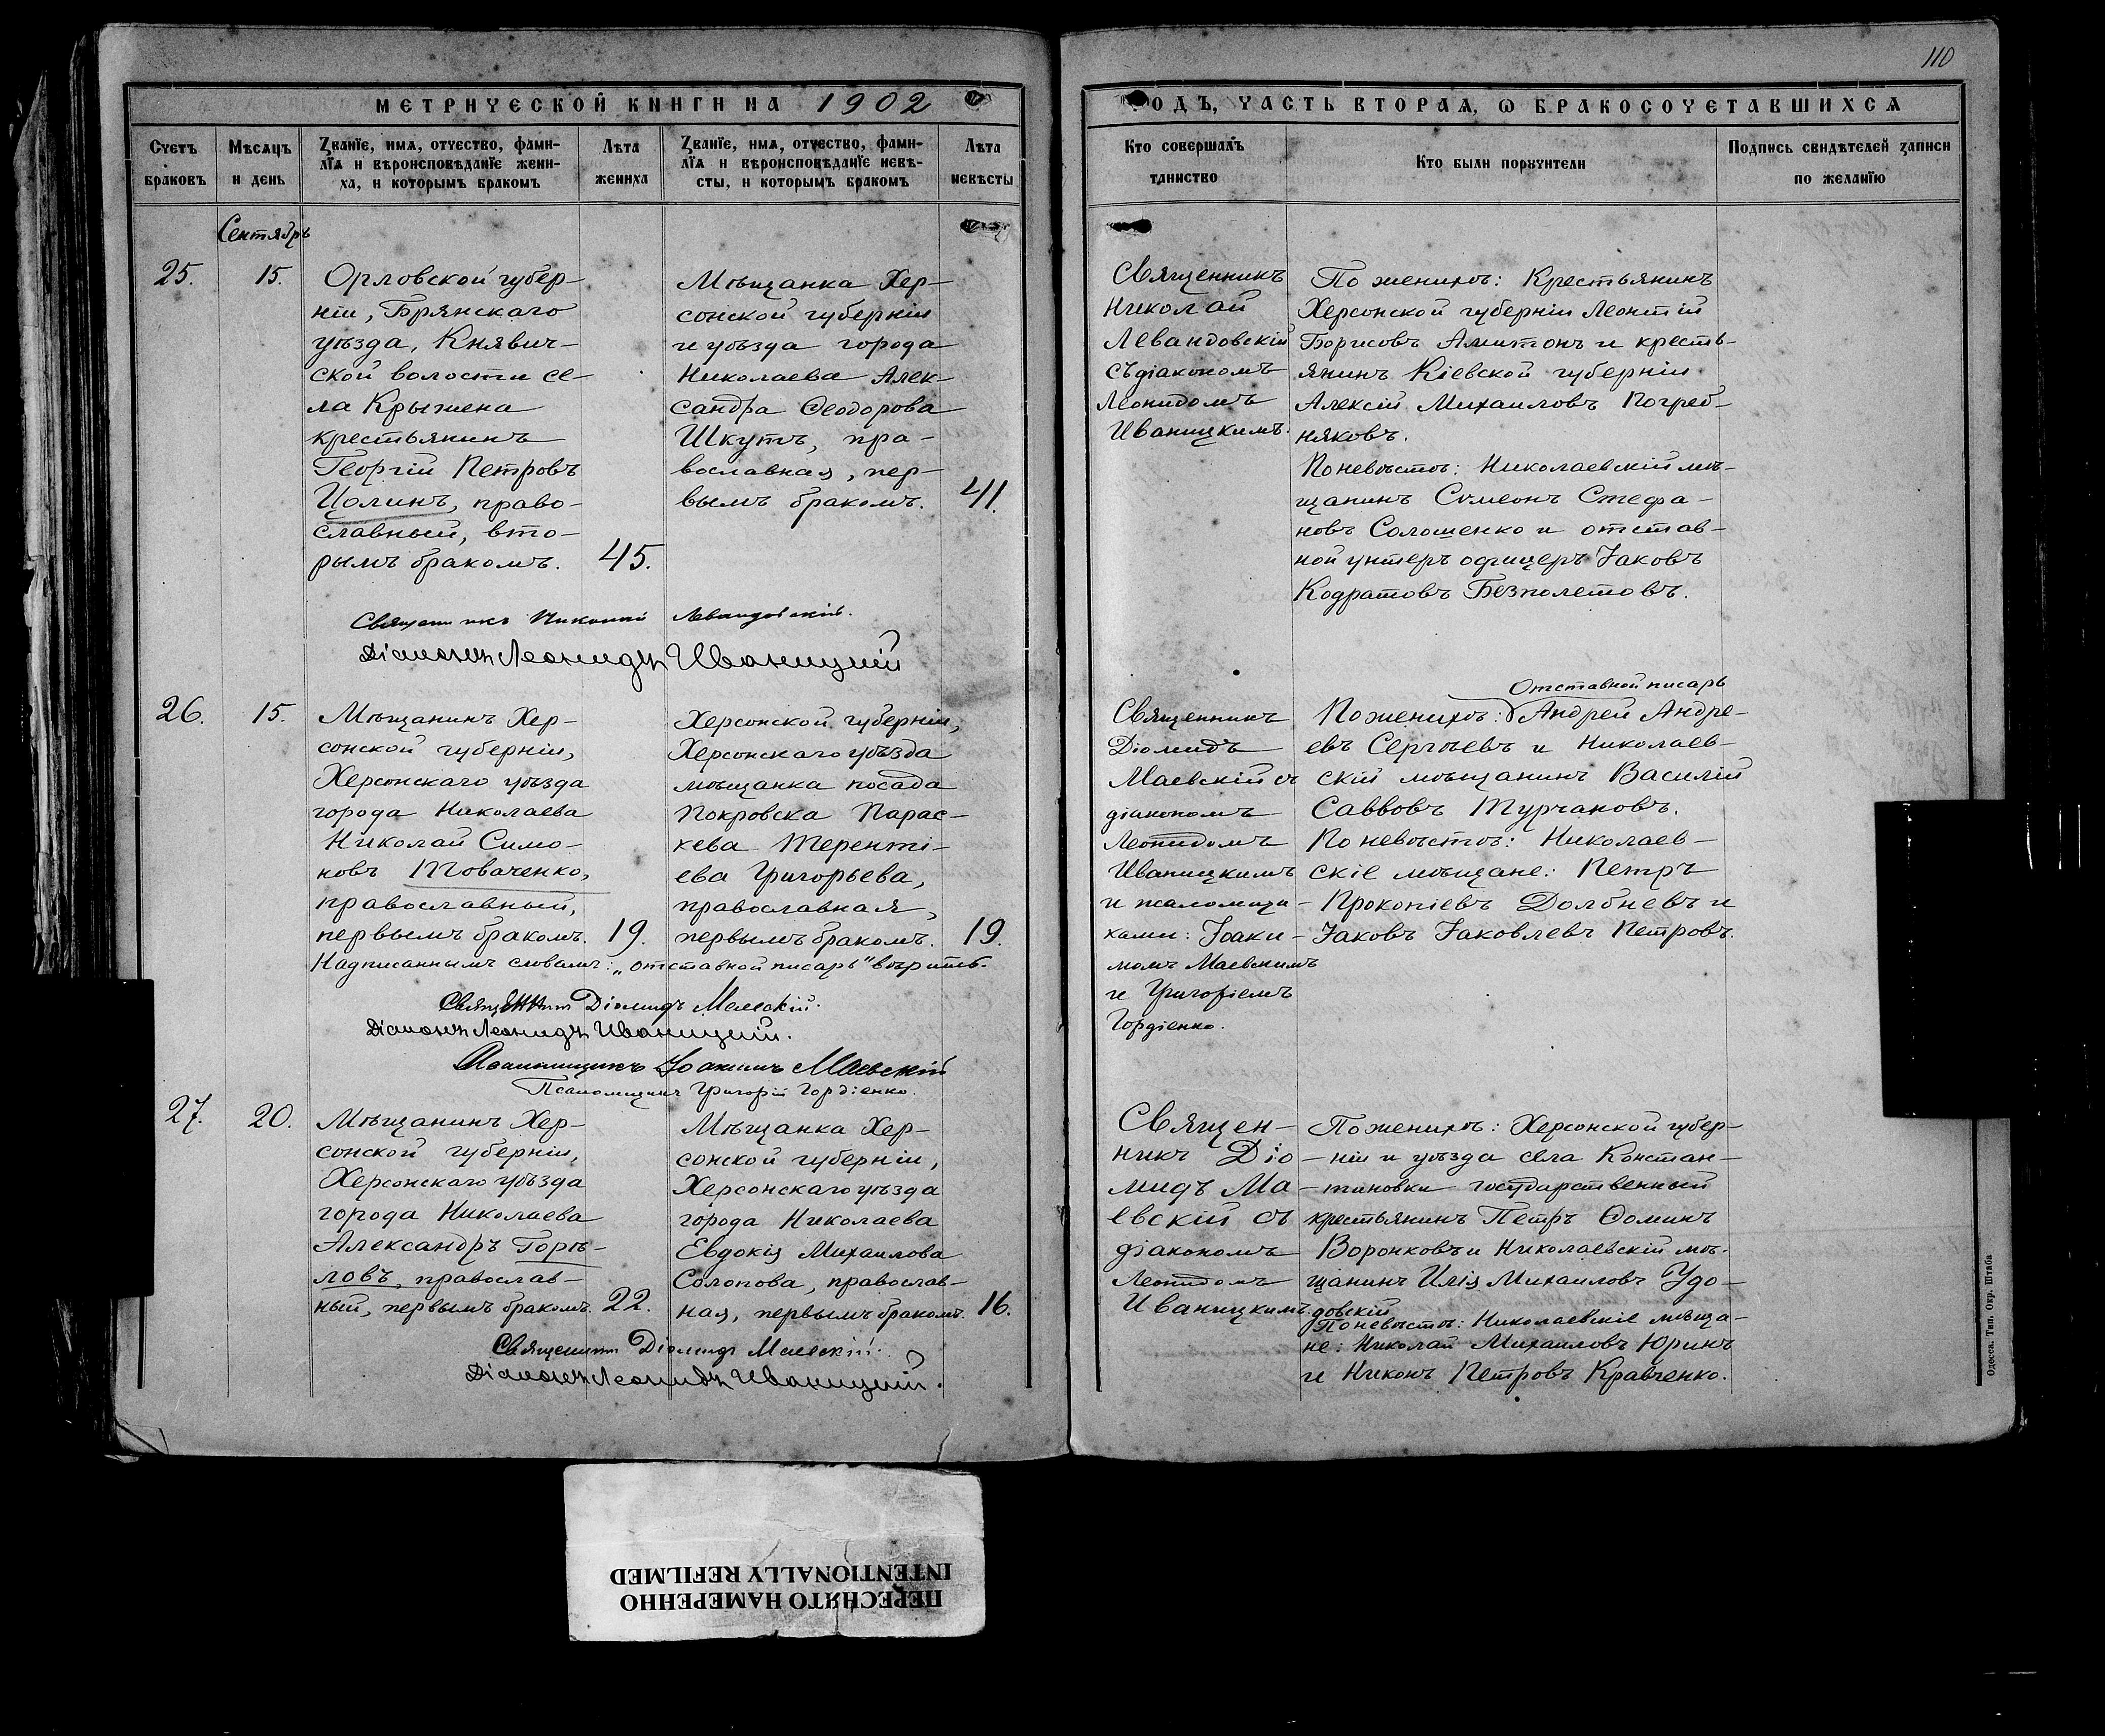 110
МЕТРИЧЕСКОЙ КНИГИ НА 1902
ГОДЪ, ЧАСТЬ ВТОРАѦ, Ѡ БРАКОСОЧЕТАВШИХСѦ
Счетъ браковъ
Мѣсѧцъ и день
Званїе, имѧ, отчество, фами-
лїѧ и вѣроисповѣданїе жени-
ха, и которымъ бракомъ
Лѣта жениха
Званїе, имѧ, отчество, фами-
лїѧ и вѣроисповѣданїе невѣ-
сты, и которымъ бракомъ
Лѣта невѣсты
Кто совершалъ таинство
Кто были поручители
Подпись свидѣтелей записи
по желанїю
Сентябрь
25.
15.
Орловской губер-
ніи, Брянскаго
уѣзда, Княвич-
ской волости се-
ла Крыжена
крестьянинъ
Георгій Петровъ
Цолинъ, право-
славный, вто-
рымъ бракомъ.
45.
Мѣщанка Хер-
сонской губерніи
и уѣзда города
Николаева Алек-
сандра Ѳеодорова
Шкутъ, пра-
вославная, пер-
вымъ бракомъ.
41.
Священникъ
Николай
Левандовскій
съ діакономъ
Леонидомъ
Иваницкимъ.
По женихѣ: Крестьянинъ
Херсонской губерніи Леонтій
Борисовъ Амитонъ и кресть-
янинъ Кіевской губерніи
Алексій Михаиловъ Погреб-
няковъ.
По невѣстѣ: Николаевскій мѣ-
щанинъ Сѵмеонъ Стефа-
новъ Соломенко и отстав-
ной унтеръ офицеръ Іаковъ
Кодратовъ Безполетовъ.
Священникъ Николай Левандовскій.
Діаконъ Леонидъ Иваницкій
26.
15.
Мѣщанинъ Хер-
сонской губерніи,
Херсонскаго уѣзда
города Николаева
Николай Симо-
новъ Товаченко,
православный,
первымъ бракомъ.
19.
Херсонской губерніи,
Херсонскаго уѣзда
мѣщанка посада
Покровска Парас-
кева Теренті-
ева Григорьева,
православная,
первымъ бракомъ.
19.
Священникъ
Діомидъ
Маевскій съ
діакономъ
Леонидомъ
Иваницкимъ
и псаломщи-
ками: Іоаки-
момъ Маевскимъ
и Григоріемъ
Гордіенко.
Отставной писарь
По женихѣ: Андрей Андре-
евъ Сергѣевъ и Николаев-
скій мѣщанинъ Василій
Саввовъ Турчановъ.
По невѣстѣ: Николаев-
скіе мѣщане: Петръ
Прокопіевъ Долбневъ и
Іаковъ Іаковлевъ Петровъ.
Надписаннымъ словамъ: „отставной писарь" вѣрить.
Священникъ Діомидъ Маевскій.
Діаконъ Леонидъ Иваницкій.
Псаломщикъ Іоакимъ Маевскій
Псаломщикъ Григорій Гордіенко.
27.
20.
Мѣщанинъ Хер-
сонской губерніи,
Херсонскаго уѣзда
города Николаева
Александръ Горѣ-
ловъ, православ-
ный, первымъ бракомъ.
22.
Мѣщанка Хер-
сонской губерніи,
Херсонскаго уѣзда
города Николаева
Евдокія Михаилова
Солопова, православ-
ная, первымъ бракомъ.
16.
Священ-
никъ Діо-
мидъ Ма-
евскій съ
діакономъ
Леонидомъ
Иваницкимъ.
По женихѣ: Херсонской губер-
ніи и уѣзда села Констан-
тиновки государственный
крестьянинъ Петръ Ѳоминъ
Воронковъ и Николаевскій мѣ-
щанинъ Илія Михаиловъ Удо-
довскій
По невѣстѣ: Николаевскіе мѣща-
не: Николай Михаиловъ Юринъ
и Никонъ Петровъ Кравченко.
Священникъ Діомидъ Маевскій.
Діаконъ Леонидъ Иваницкій.
Одесса. Тип. Окр. Штаба
ПЕРЕСНЯТО НАМЕРЕННО
INTENTIONALLY REFILMED